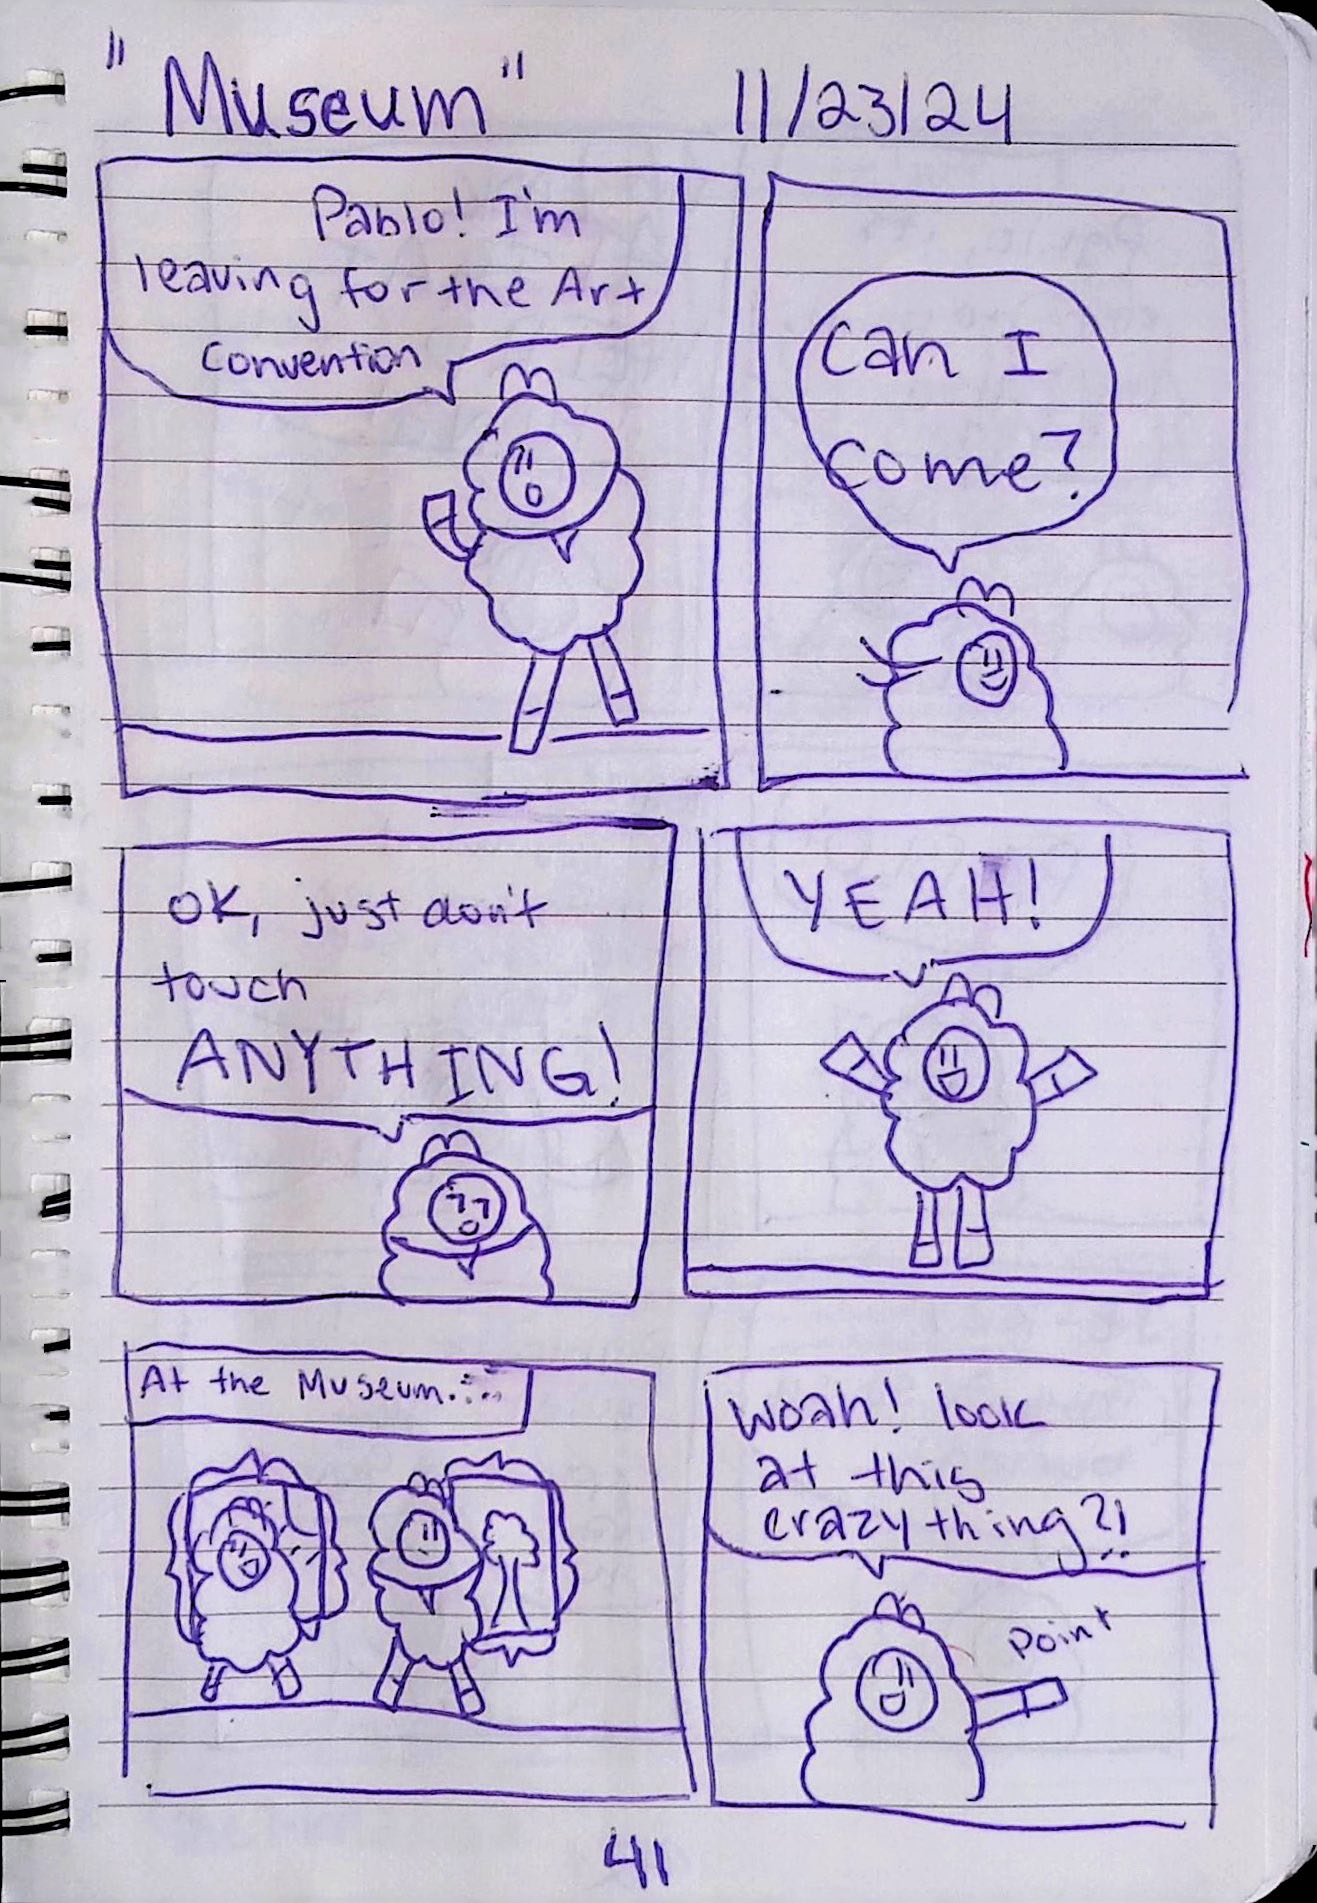 "Museum" 11/23/24
Pablo! I'm
leaving for the Art
convention
Can I
come?
OK, just don't
touch
ANYTHING!
YEAH!
At the Museum....
Woah! look
at this
crazy thing?!
Point
41